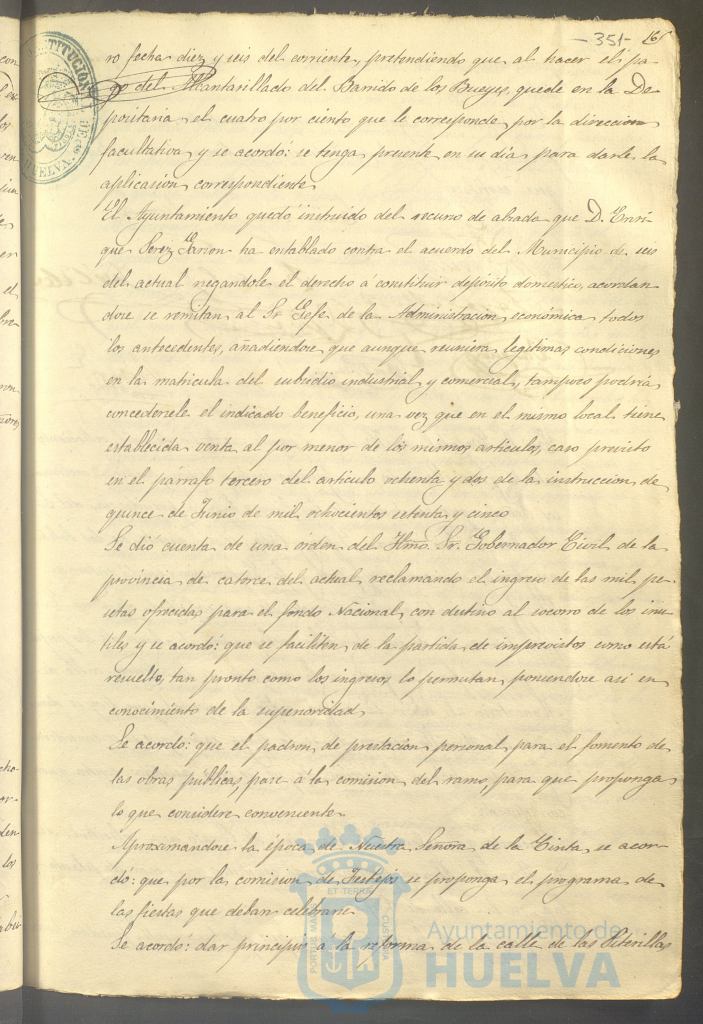 -351- 16
ro fecha diez y seis del corriente, pretendiendo que, al hacer el pa-
go del Alcantarillado del Barrido de los Bueyes, quede en la De
positaria el cuatro por ciento que le corresponde por la direccion
facultativa y se acordó: se tenga presente en su dia para darle la
aplicacion correspondiente.
El Ayuntamiento quedó instruido del recurso de alzada que D. Enri-
que Perez Garzon ha entablado contra el acuerdo del Municipio de seis
del actual negandole el derecho á constituir deposito domestico, acordan
dose se remitan al Sr Gefe de la Administracion económica todos
los antecedentes, añadiendose que aunque reuniera legitimas condiciones
en la matricula del subsidio industrial y comercial, tampoco podria
concedersele el indicado beneficio, una vez que en el mismo local tiene
establecida venta al por menor de los mismos articulos, caso previsto
en el párrafo tercero del articulo ochenta y dos de la instruccion de
quince de Junio de mil ochocientos setenta y cinco
Se dió cuenta de una órden del Iltmo. Sr. Gobernador Civil de la
provincia de catorce del actual reclamando el ingreso de las mil pe-
setas ofrecidas para el fondo Nacional, con destino al socorro de los inu-
tiles y se acordó: que se faciliten de la partida de imprevistos como está
resuelto, tan pronto como los ingresos lo permitan, poniendose asi en
conocimiento de la superioridad
Se acordó: que el padron de prestacion personal para el fomento de
las obras públicas, pase á la comision del ramo, para que proponga
lo que considere conveniente.
Aproximandose la época de Nuestra Señora de la Cinta, se acor-
dó: que por la comision de Festejos se proponga el programa de
las fiestas que deban celebrarse
Se acordo: dar principio á la reforma de la calle de las
Ayuntamiento de
HUELVA